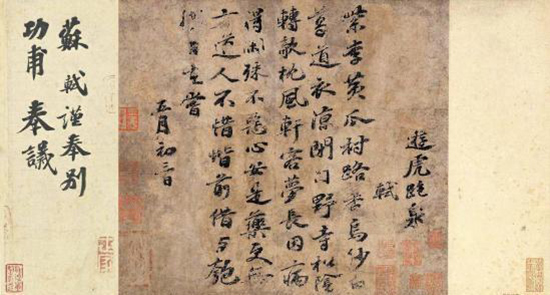 遊虎跑泉
軾
紫李黄瓜村路香烏紗白
葛道衣涼閉門野寺松陰
轉欹枕風軒客夢長因病
得閑殊不惡心安是藥更無
方道人不惜堦前借与匏
自在嘗
五月初三日
蘇軾謹奉別
功甫奉議